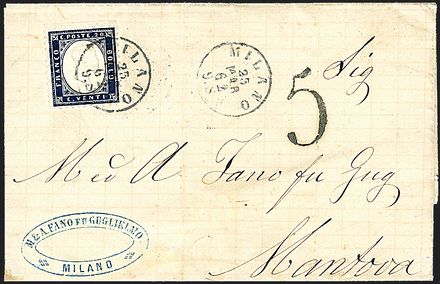 C. POSTE 20
FRANCO
BOLLO
C. VENTI
MILANO
25
MILANO
25
MAR
62
9 S
5
Sig
M e A Fano fu Gug
Mantova
M & A FANO FU GUGLIELMO
MILANO